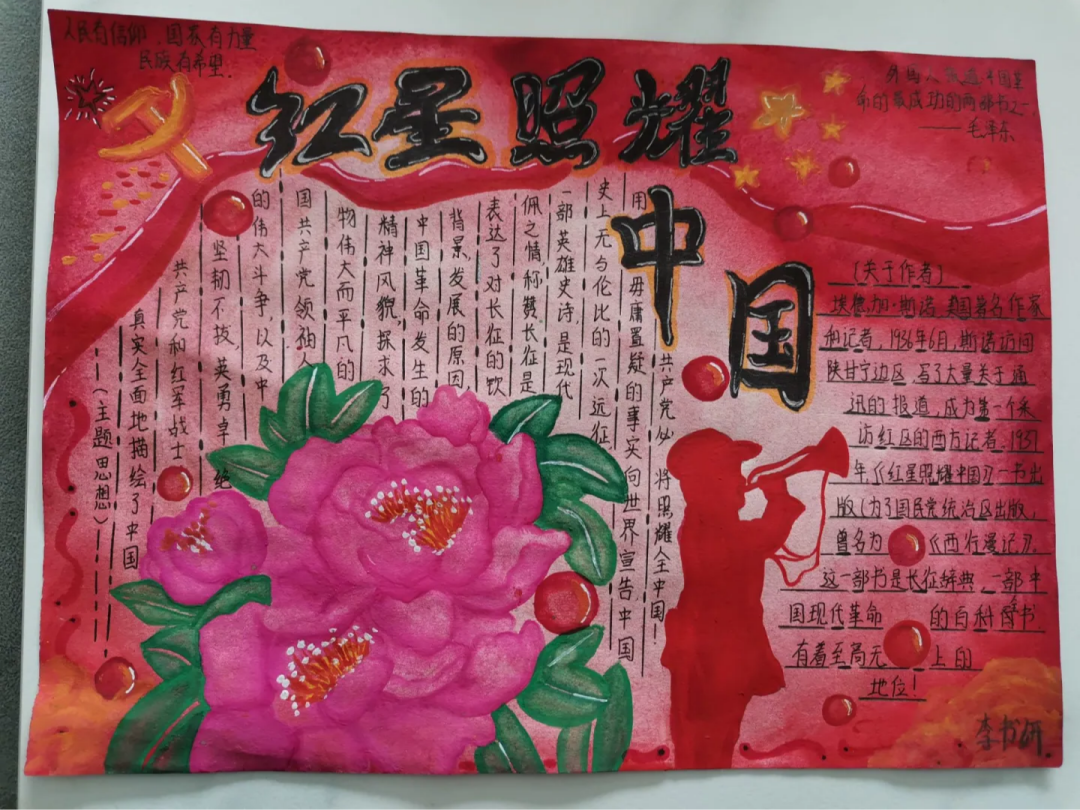 人民有信仰,国家有力量
民族有希望.
红星照耀
中
国
外国人报道中国革
命的最成功的两部书之一
——毛泽东
(主题思想)
真实全面地描绘了中国
共产党和红军战士
坚韧不拔 英勇卓绝
的伟大斗争,以及中
国共产党领袖人
物伟大而平凡的
精神风貌,探求了
中国革命发生的
背景,发展的原因,
表达了对长征的钦
佩之情,称赞长征是
一部英雄史诗,是现代
史上无与伦比的一次远征,
用毋庸置疑的事实向世界宣告中国
共产党必将照耀全中国!
〔关于作者〕
埃德加·斯诺 美国著名作家
和记者,1936年6月,斯诺访问
陕甘宁边区 写了大量关于通
讯的报道,成为第一个采
访红区的西方记者.1937
年,《红星照耀中国》一书出
版(为了国民党统治区出版,
曾名为《西行漫记》).
这一部书是长征辞典,一部中
国现代革命的百科全书
有着至高无上的
地位!
李书研